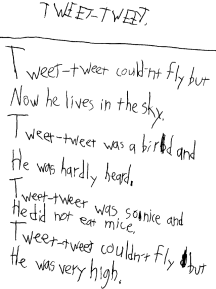 TWEET-TWEET.
Tweet-tweet couldn't fly but
Now he lives in the sky.
Tweet-tweet was a bird and
He was hardly heard.
Tweet-tweet was so nice and
He did not eat mice.
Tweet-tweet couldn't fly but
He was very high.